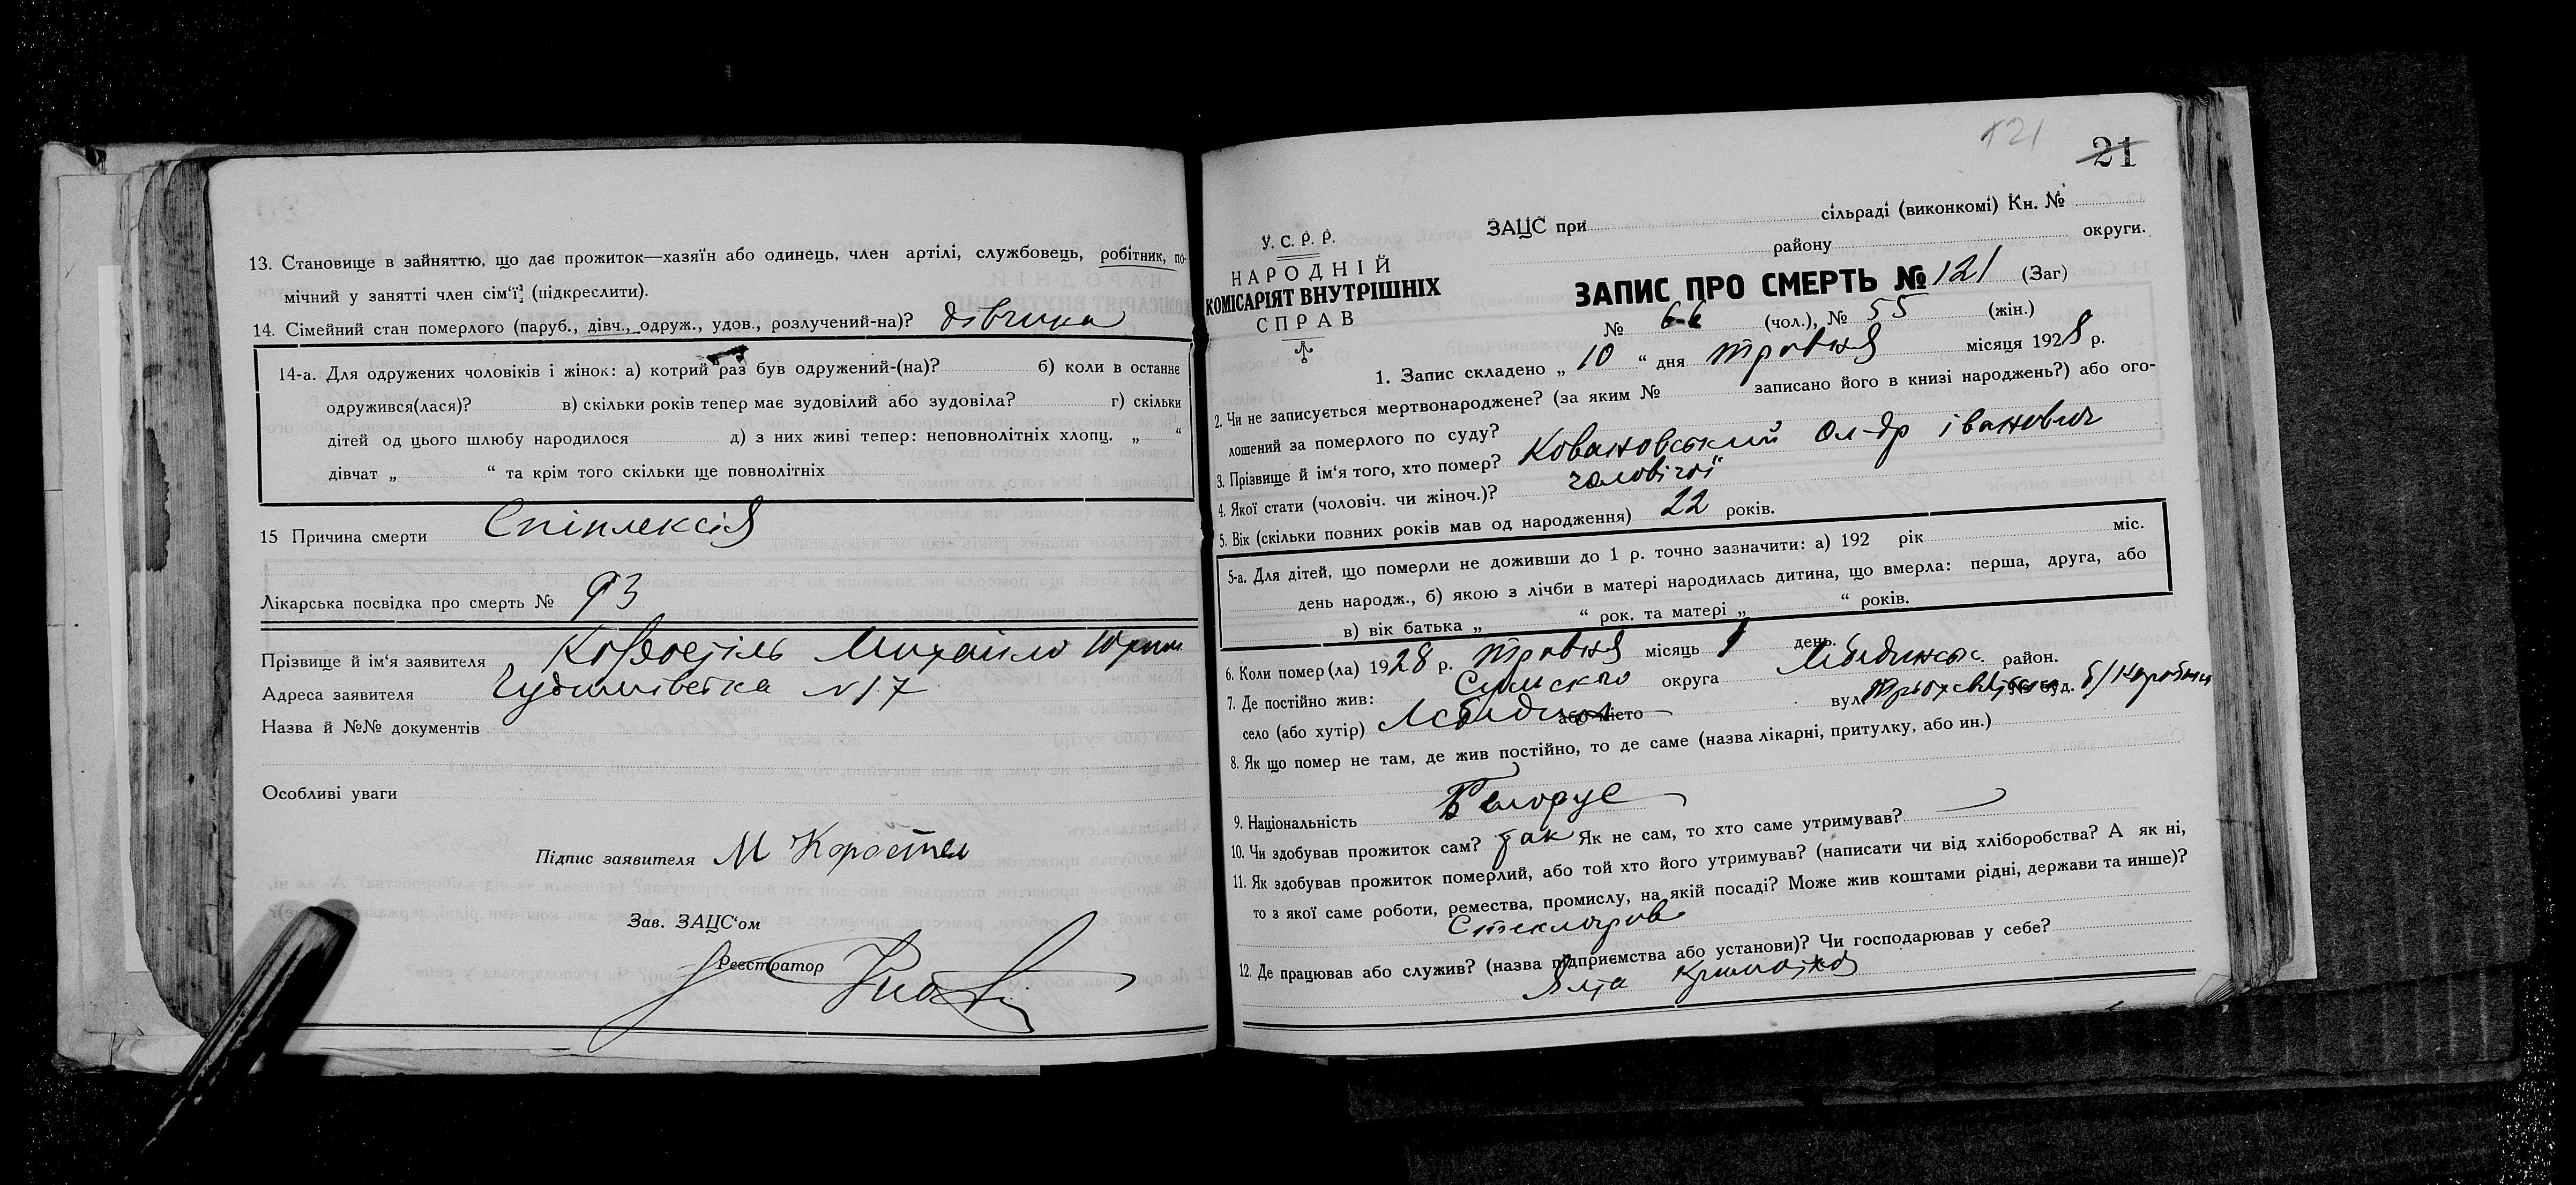 13. Становище в зайняттю, що дає прожиток—хазяїн або одинець, член артілі, службовець, робітник, по-
мічний у занятті член сім'ї. (підкреслити).
14. Сімейний стан померлого (паруб., дівч., одруж., удов., розлучений-на)?
14-а. Для одружених чоловіків і жінок: а) котрий раз був одружений-(на)? б) коли в останнє
одружився(лася)? в) скільки років тепер має зудовілий або зудовіла? г) скільки
дітей од цього шлюбу народилося д) з них живі тепер: неповнолітніх хлопц. „ “
дівчат „ “ та крім того скільки ще повнолітніх
15 Причина смерти
Лікарська посвідка про смерть № 93
Прізвище й ім'я заявителя Михайло
Адреса заявителя №17
Назва й №№ документів
Особливі уваги
Підпис заявителя М Коростел
Зав. ЗАЦС'ом
Реєстратор
121
21
У. С. Р. Р.
НАРОДНІЙ
КОМІСАРІЯТ ВНУТРІШНІХ
СПРАВ
ЗАЦС при сільраді (виконкомі) Кн. №
району округи.
ЗАПИС ПРО СМЕРТЬ № 121 (Заг)
№ 66 (чол.), № 55 (жін.)
1. Запис складено „ 10 “ дня травня місяця 1928 р.
2. Чи не записується мертвонароджене? (за яким № записано його в книзі народжень?) або ого-
лошений за померлого по суду?
3. Прізвище й ім'я того, хто помер? Ковановський Ол-др іванович
4. Якої стати (чоловіч. чи жіноч.)? чоловічої
5. Вік (скільки повних років мав од народження) 22 років.
5-а. Для дітей, що померли не доживши до 1 р. точно зазначити: а) 192 рік міс.
день народж., б) якою з лічби в матері народилась дитина, що вмерла: перша, друга, або
в) вік батька „ “ рок. та матері „ “ років.
6. Коли помер(ла) 1928 р. травня місяць день.
7. Де постійно жив: Сумского округа Лебединськ. район.
село (або хутір) Лебедин або місто вул. № буд.
8. Як що помер не там, де жив постійно, то де саме (назва лікарні, притулку, або ин.)
9. Національність Белорус
10. Чи здобував прожиток сам? так Як не сам, то хто саме утримував?
11. Як здобував прожиток померлий, або той хто його утримував? (написати чи від хліборобства? А як ні,
то з якої саме роботи, ремества, промислу, на якій посаді? Може жив коштами рідні, держави та инше)?
12. Де працював або служив? (назва підприємства або установи)? Чи господарював у себе?
Ялта